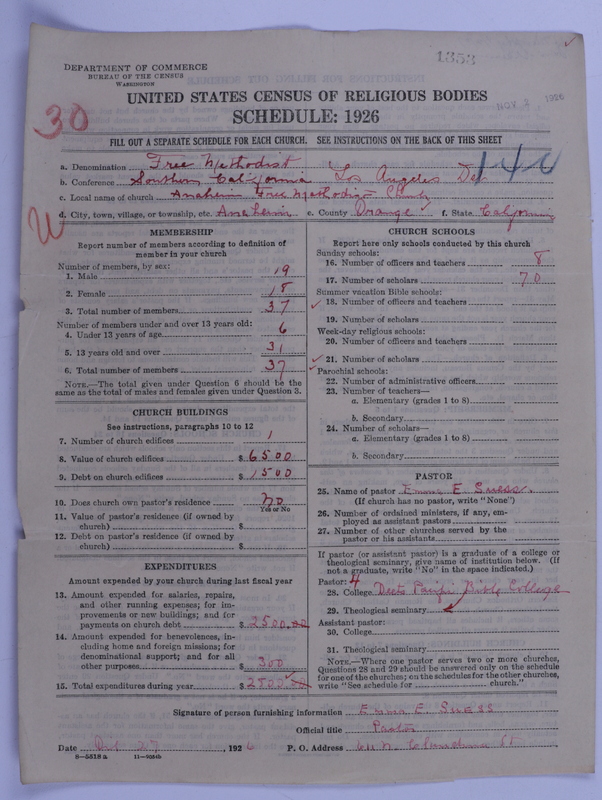 1353
DEPARTMENT OF COMMERCE
BUREAU OF THE CENSUS
WASHINGTON
UNITED STATES CENSUS OF RELIGIOUS BODIES
1926
SCHEDULE: 1926
30
FILL OUT A SEPARATE SCHEDULE FOR EACH CHURCH. SEE INSTRUCTIONS ON THE BACK OF THIS SHEET
a. Denomination Free Methodist
b. Conference Southern California Los Angeles
c. Local name of church Anaheim Free Methodist Church
d. City, town, village, or township, etc. Anaheim e. County Orange f. State California
MEMBERSHIP
Report number of members according to definition of member in your church
Number of members, by sex:
1. Male 19
2. Female 18
3. Total number of members 37
Number of members under and over 13 years old:
4. Under 13 years of age 6
5. 13 years old and over 31
6. Total number of members 37
NOTE.—The total given under Question 6 should be the
same as the total of males and females given under Question 3.
CHURCH BUILDINGS
See instructions, paragraphs 10 to 12
7. Number of church edifices 1
8. Value of church edifices $ 6500
9. Debt on church edifices $ 1500
10. Does church own pastor's residence no
Yes or No
11. Value of pastor's residence (if owned by
church) $
12. Debt on pastor's residence (if owned by
church) $
EXPENDITURES
Amount expended by your church during last fiscal year
13. Amount expended for salaries, repairs,
and other running expenses; for im-
provements or new buildings; and for
payments on church debt $ 2500.00
14. Amount expended for benevolences, in-
cluding home and foreign missions; for
denominational support; and for all
other purposes $ 300
15. Total expenditures during year $ 2800
CHURCH SCHOOLS
Report here only schools conducted by this church
Sunday schools:
16. Number of officers and teachers 8
17. Number of scholars 70
Summer vacation Bible schools:
18. Number of officers and teachers
19. Number of scholars
Week-day religious schools:
20. Number of officers and teachers
21. Number of scholars
Parochial schools:
22. Number of administrative officers
23. Number of teachers—
a. Elementary (grades 1 to 8)
b. Secondary
24. Number of scholars—
a. Elementary (grades 1 to 8)
b. Secondary
PASTOR
25. Name of pastor Emma E. Suess.
(If church has no pastor, write "None")
26. Number of ordained ministers, if any, em-
ployed as assistant pastors
27. Number of other churches served by the
pastor or his assistants
If pastor (or assistant pastor) is a graduate of a college or
theological seminary, give name of institution below. (If
not a graduate, write "No" in the space indicated.)
Pastor: 4
28. College Bible College
29. Theological seminary
Assistant pastor:
30. College
31. Theological seminary
NOTE.—Where one pastor serves two or more churches,
Questions 28 and 29 should be answered only on the schedule
for one of the churches; on the schedules for the other churches,
write "See schedule for church."
Signature of person furnishing information Emma E Suess
Official title Pastor
Date Oct 27, 1926 P. O. Address N. St
8—5518a 11—9554b